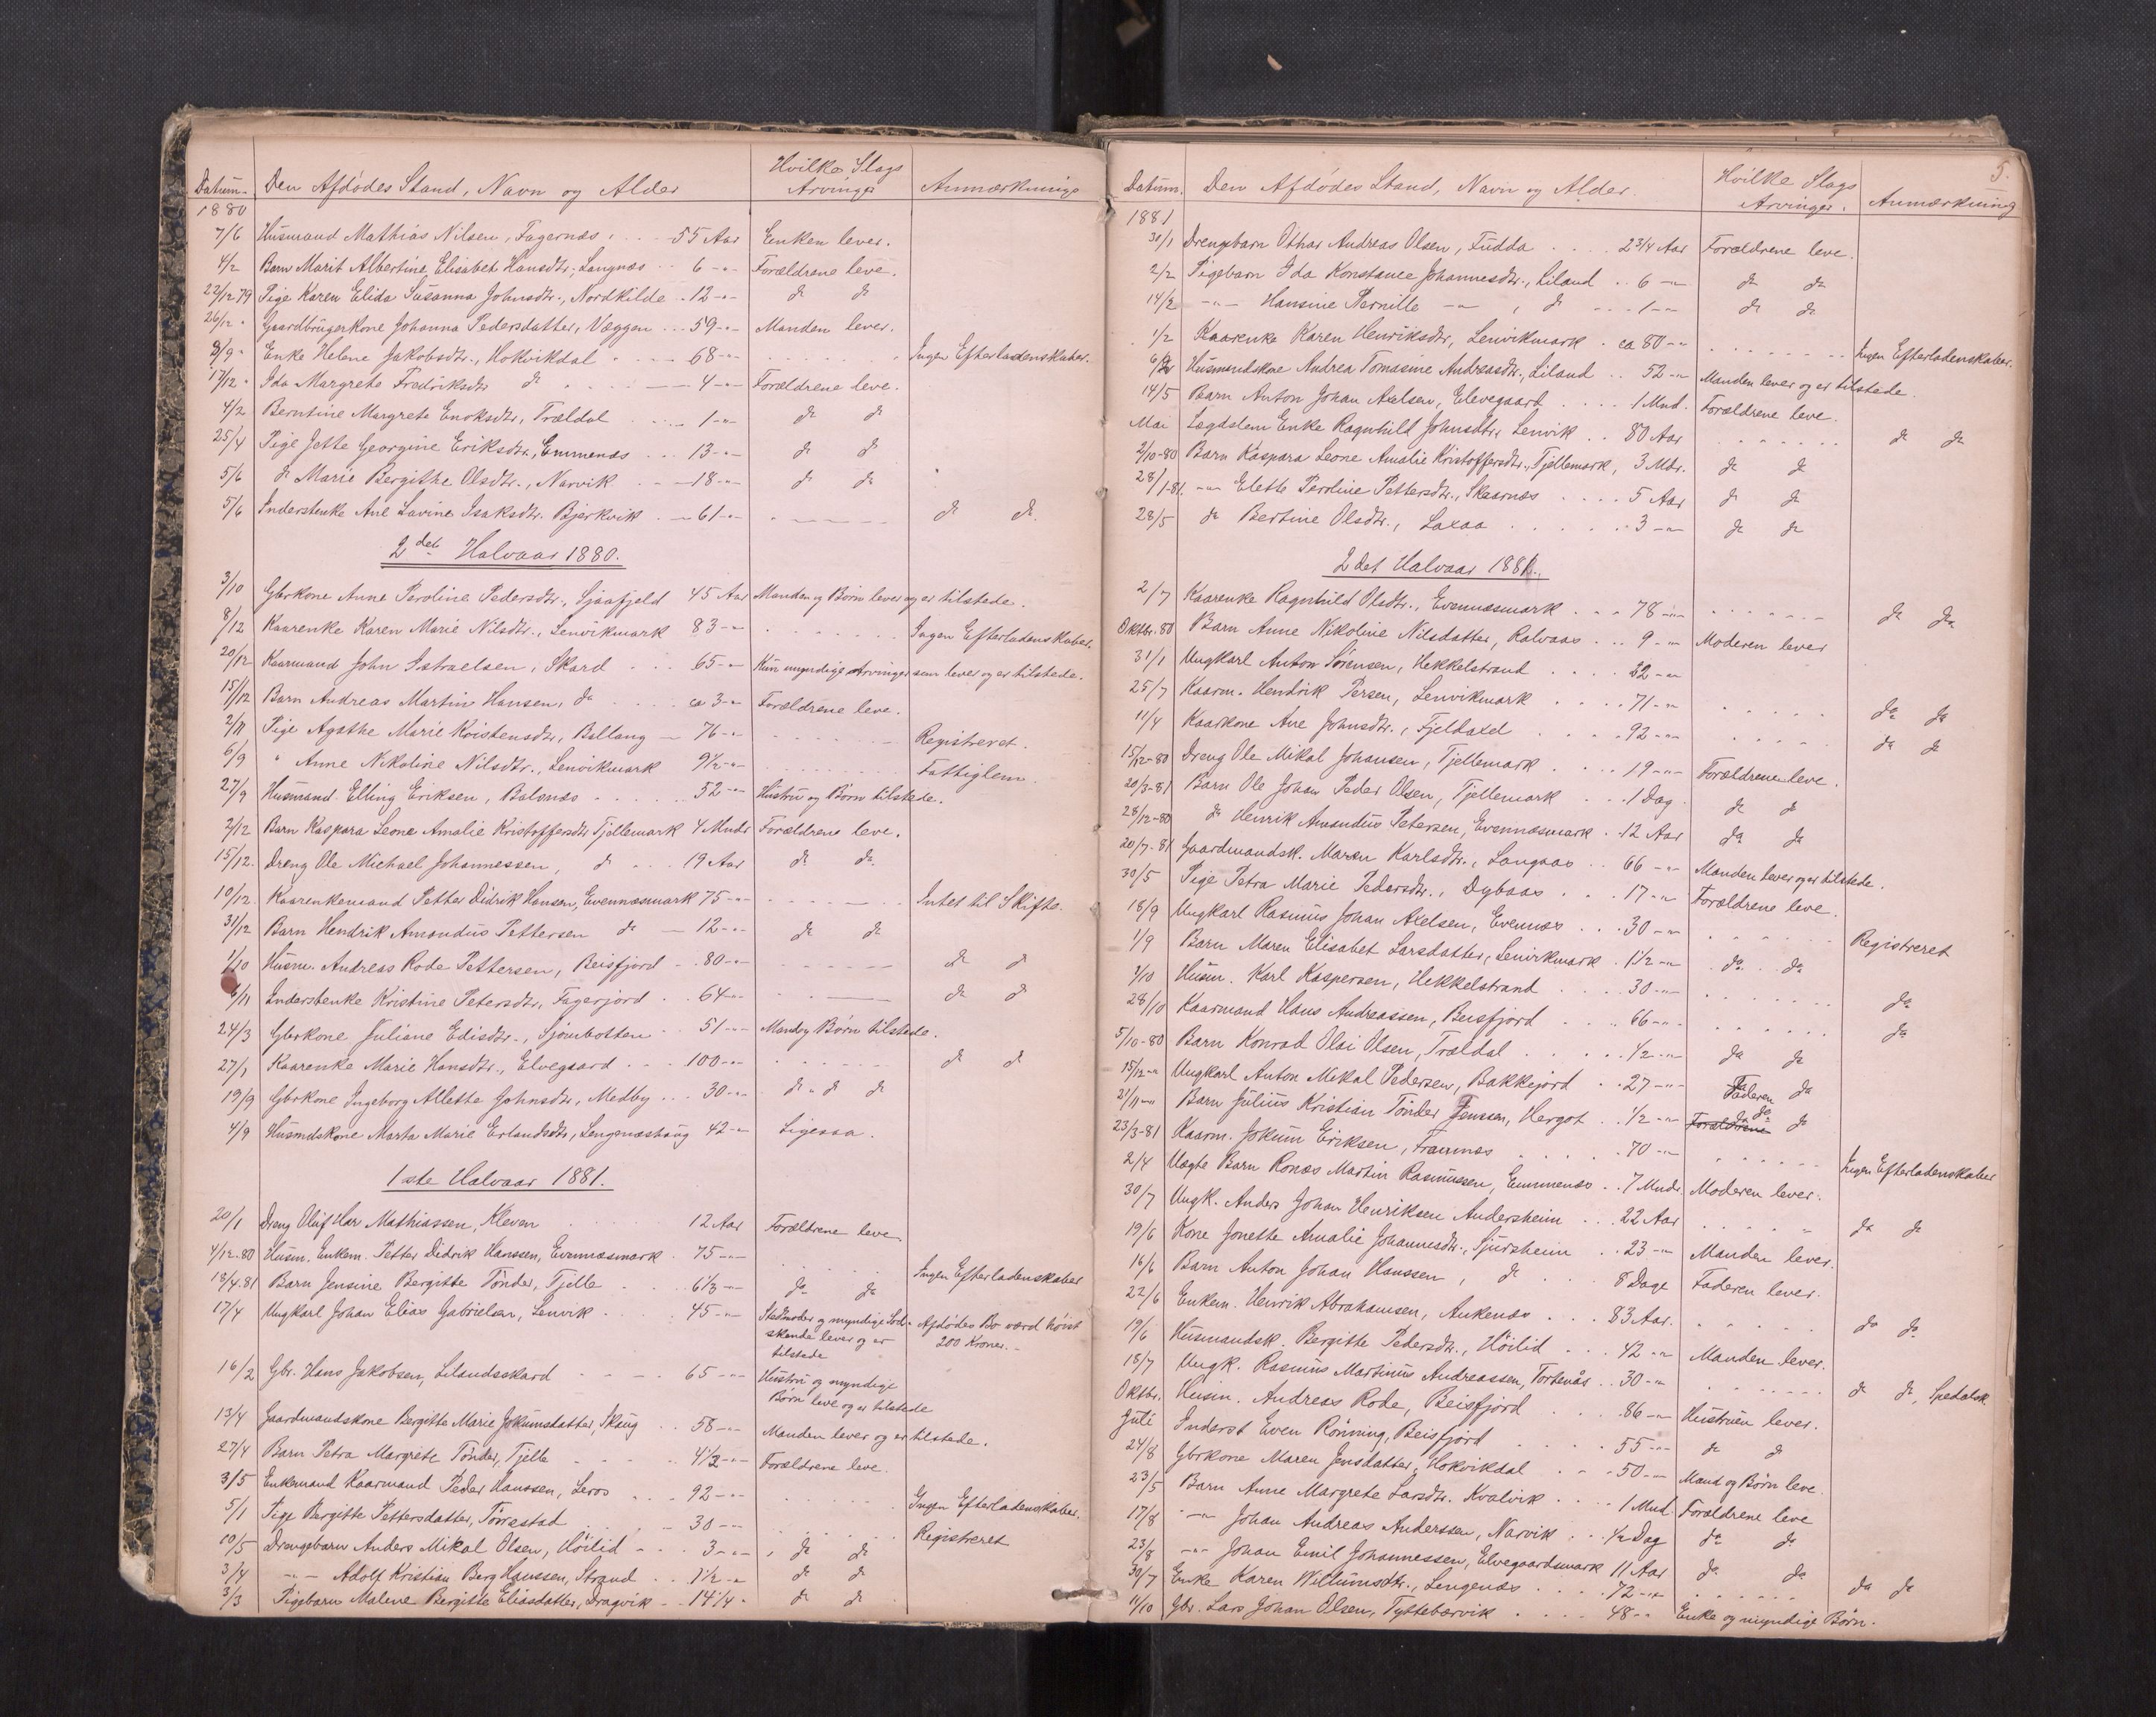 Datum. Den Afdødes Stand, Navn og Alder Hvilke Slags Arvinger Anmærkninge
1880
7/6 Husmand Mathias Nilsen, Fagernæs 55 Aar Enken lever.
4/2 Barn Marit Albertine Elisabet Hansdtr., Langnæs 6 -"- Forældrene leve.
22/12 79 Pige Karen Elida Susanna Johnsdtr., Nordkilde 12 -"- do do
26/12 " Gaardbrugerkone Johanna Pedersdatter, Væggen 59 -"- Manden lever.
9/9 " Enke Helene Jakobsdtr., Hokvikdal 68 -"- Ingen Efterladenskaber.
17/12 " Ida Margrete Fredriksdtr do 4 -"- Forældrene leve.
4/2 Berntine Margrete Enoksdtr, Trældal 1 -"- do do
25/4 Pige Jette Georgine Eriksdtr., Emmenæs 13 -"- do do
5/6 do Marie Bergithe Olsdtr., Narvik 18 -"- do do
5/6 Inderstenke Ane Lavine Isaksdtr. Bjerkvik 61 -"- do do
2det Halvaar 1880.
3/10 Gbrkone Anne Peroline Pedersdtr., Sjaafjeld 45 Aar Manden og Børn lever og er tilstede.
8/12 Kaarenke Karen Marie Nilsdtr., Lenvikmark 83 -"- Ingen Efterladenskaber.
20/12 Kaarmand John Istraelsen, Skard 65 -"- Kun myndige Arvinger som lever og er tilstede.
15/12 Barn Andreas Martin Hansen, do ca 3 -"- Forældrene leve.
2/11 Pige Agathe Marie Kristensdtr, Ballang 76 -"- Registreret.
6/9 " Anne Nikoline Nilsdtr., Lenvikmark 9½ -"- Fattiglem.
27/9 Husmand Elling Eriksen, Balsnæs 52 -"- Hustru og Børn tilstede.
2/12 Barn Kaspara Leone Amalie Kristoffersdtr Tjellemark 4 Mndr Forældrene leve.
15/12. Dreng Ole Michael Johannessen, do 19 Aar do do
10/12. Kaarenkemand Petter Didrik Hansen, Evennæsmark 75 -"- Intet til Skifte.
31/12 Barn Hendrik Amandus Pettersen do 12 -"- do do
1/10 Husm. Andreas Rode Pettersen, Beisfjord 80 -"- do do
6/11 Inderstenke Kristine Petersdtr, Fagerjord 64 -"- do do
24/3 Gbrkone Juliane Edisdtr., Sjömbotten 51 -"- Mand og Børn tilstede.
27/1 Kaarenke Marie Hansdtr., Elvegaard 100 -"- do do
19/9 Gbrkone Ingeborg Allette Johnsdtr, Medby 30 -"- do " do do
4/9 Husmdskone Marta Marie Erlandsdtr, Lengenæshaug 42 -"- Ligesaa.
1ste Halvaar 1881.
20/1 Dreng Oluf Har Mathiassen, Kleven 12 Aar Forældrene leve.
4/12-80 Husm. Enkem. Petter Didrik Hanssen, Evennæsmark 75 -"- Ingen Efterladenskaber
18/4.81 Barn Jensine Bergitte Tönder, Tjelle 6⅓ -"- do do
17/4 Ungkarl Johan Elias Gabrielsen, Lenvik 45 -"- Stedmoder og myndige Söd- Afdødes Bo værd höist
skende lever og er 200 Kroner.
tilstede
16/2 Gbr. Hans Jakobsen, Lilandsskard 65 -"- Hustru og myndige
Børn leve og er tilstede
13/4 Gaardmandskone Bergitte Marie Jokumsdatter, Skaug 58 -"- Manden lever og er tilstede.
27/4 Barn Petra Margrete Tönder, Tjelle 4½ -"- Forældrene leve.
3/5 Enkemand Kaarmand Peder Hanssen, Leros 92 -"- Ingen Efterladenskaber.
5/1 Pige Bergitte Pettersdatter, Tørrestad 30 -"- Registreret
10/5 Drengebarn Anders Mikal Olsen, Höilid 3 -"- do do
3/4 -"- Adolf Kristian Berg Hanssen, Strand 1½ -"- do do
3/3 Pigebarn Malene Bergitte Eliasdatter, Dragvik 14¼ " do do
5.
Datum. Den Afdødes Stand, Navn og Alder. Hvilke Slags Arvinger. Anmærkning
1881
31/1 Drengebarn Othar Andreas Olsen, Fudda 2 3/4 Aar Forældrene leve.
2/2 Pigebarn Ida Konstance Johannesdtr., Liland 6 -"- do do
14/2 -"- Hansine Pernille -"- , do 1 -"- do do
1/2 Kaarenke Karen Henriksdtr, Lenvikmark ca 80 -"- Ingen Efterladenskaber.
6/2 Husmandskone Andrea Tomasine Andreasdtr., Liland 52 -"- Manden lever og er tilstede.
14/5 Baarn Anton Johan Axelsen, Elevegaard 1 Mnd. Forældrene leve.
Mai Lægdslem Enke Ragnhild Johnsdtr, Lenvik 80 Aar do do
2/10-80 Barn Kaspara Leone Amalie Kristoffersdtr., Tjellemark, 3 Mdr. do do
28/1-81. -"- Elette Perdine Pettersdtr., Skaarnæs 5 Aar do do
28/5 do Bertine Olsdtr., Laxaa 3 -"- do do
2det Halvaar 1881.
2/7 Kaarenke Ragnhild Olsdtr., Evennæsmark 78 -"- do do
Oktbr. 80 Barn Anne Nikoline Nilsdatter, Ralvaas 9 -"- Moderen lever
31/1 Ungkarl Anton Sörensen, Hekkelstrand 32 -"-
25/7 Kaarm. Hendrik Persen, Lenvikmark 71 -"- do do
11/4 Kaarkone Ane Johnsdtr., Fjeldaxel 92 -"- do do
15/12-80 Dreng Ole Mikal Johansen, Tjellemark 19 -"- Forældrene leve.
20/3-81 Barn Ole Johan Peder Olsen, Tjellemark 1 Dag. do do
28/12-80 do Henrik Amandus Petersen, Evennæsmark 12 Aar do do
20/7-81 Gaardmandsk. Maren Karlsdtr., Langaas 66 -"- Manden lever og er tilstede.
30/5 Pige Petra Marie Pedersdtr., Dybaas 17 -"- Forældrene leve.
18/9 Ungkarl Rasmus Johan Axelsen, Evenæs 30 -"- Registreret
1/9 Barn Maren Elisabet Larsdatter, Lenvikmark 1½ -"- do do
1/10 Husm. Karl Kaspersen, Hekkelstrand 30 -"- do
28/10 Kaarmand Hans Andreassen, Beisfjord 66 -"- do
5/10-80 Barn Konrad Olai Olsen, Trældal ½ -"- do do
15/12-" Ungkarl Anton Mekal Pedersen, Bakkejord 27 -"- Faderen do
21/11-" Barn Julius Kristian Tönder Jenssen, Hergot ½ -"- Forældrene do do
23/3-81 Kaarm. Jokum Eriksen, Framnæs 70 -"- Ingen Efterladenskaber
2/4 Uægte Barn Ronæs Martin Rasmussen, Emmenæs 7 Mndr. Moderen lever.
30/7 Ungk. Anders Johan Henriksen Andersheim 22 Aar do do
19/6 Kone Jonette Amalie Johannesdtr., Sjursheim 23 -"- Manden lever.
16/6 Barn Anton Johan Hanssen, do 8 Dage Faderen lever.
22/6 Enkem. Henrik Abrahamsen, Ankenæs 83 Aar. do do
19/6 Husmandsk. Bergitte Pedersdtr., Höilid 42 -"- Manden lever.
18/7 Ungk. Rasmus Martinus Andreassen, Tortenås 30 -"- do do, Spedalsk
Oktbr. Husm. Andreas Rode, Beisfjord 86 -"- Hustruen lever.
Juli Inderst Even Rönning, Beisfjord 55 -"- do do
24/8 Gbrkone Maren Jensdatter, Hokvikdal 50 -"- Mand og Børn leve.
23/5 Barn Anne Margrete Larsdtr. Kvalvik 1 Mnd. Forældrene leve
17/8 -"- Johan Andreas Anderssen, Narvik ½ Dag do do
23/8 -"- Johan Emil Johannessen, Elvegaardsmark 11 Aar do do
30/7 Enke Karen Willumsdtr., Lengenæs 72 -"- do do
11/10 Gbr. Lars Johan Olsen, Tyttebærvik 48 -"- Enke og myndige Børn.